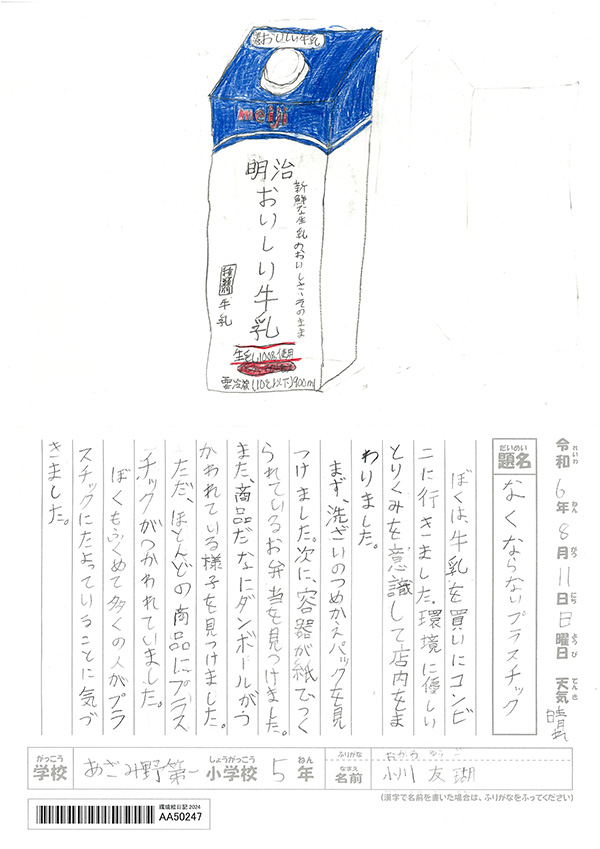 おいしい牛乳
meiji
明治
おいしい牛乳
新鮮な生乳のおいしさ、そのまま
種類別
牛乳
生乳100%使用
要冷蔵(10℃以下)900ml
令和6年8月11日日曜日 天気 晴れ
れいわ ねん がつ にち ようび てんき
だいめい
題名
なくならないプラスチック
ぼくは、牛乳を買いにコンビ
ニに行きました。環境に優しい
とりくみを意識して店内をま
わりました。
まず、洗ざいのつめかえパックを見
つけました。次に、容器が紙でつく
られているお弁当を見つけました。
また、商品だなにダンボールがつ
かわれている様子を見つけました。
ただ、ほとんどの商品にプラス
チックがつかわれていました。
ぼくもふくめて多くの人がプラ
スチックにたよっていることに気づ
きました。
がっこう しょうがっこう ねん ふりがな
学校 あざみ野第一小学校 5年
なまえ
名前 小川 友瑚
(漢字で名前を書いた場合は、ふりがなをふってください)
環境絵日記 2024
AA50247